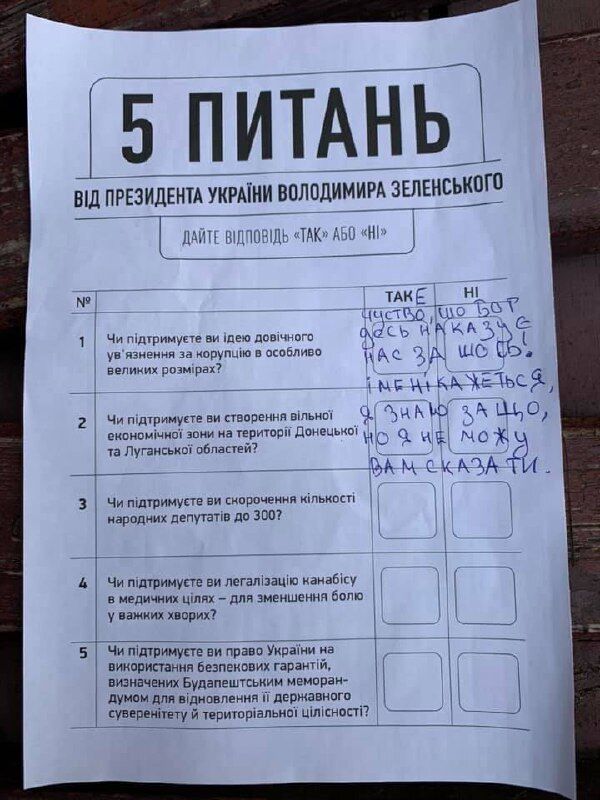 5 ПИТАНЬ
ВІД ПРЕЗИДЕНТА УКРАЇНИ ВОЛОДИМИРА ЗЕЛЕНСЬКОГО
ДАЙТЕ ВІДПОВІДЬ «ТАК» АБО «НІ»
№ ТАКЕ НІ
1 Чи підтримуєте ви ідею довічного
ув'язнення за корупцію в особливо
великих розмірах?
чуство, шо бог
десь наказує
нас за шось!
і мені кажеться,
2 Чи підтримуєте ви створення вільної
економічної зони на території Донецької
та Луганської областей?
я знаю за що,
но я не можу
вам сказати.
3 Чи підтримуєте ви скорочення кількості
народних депутатів до 300?
4 Чи підтримуєте ви легалізацію канабісу
в медичних цілях – для зменшення болю
у важких хворих?
5 Чи підтримуєте ви право України на
використання безпекових гарантій,
визначених Будапештським меморан-
думом для відновлення її державного
суверенітету й територіальної цілісності?